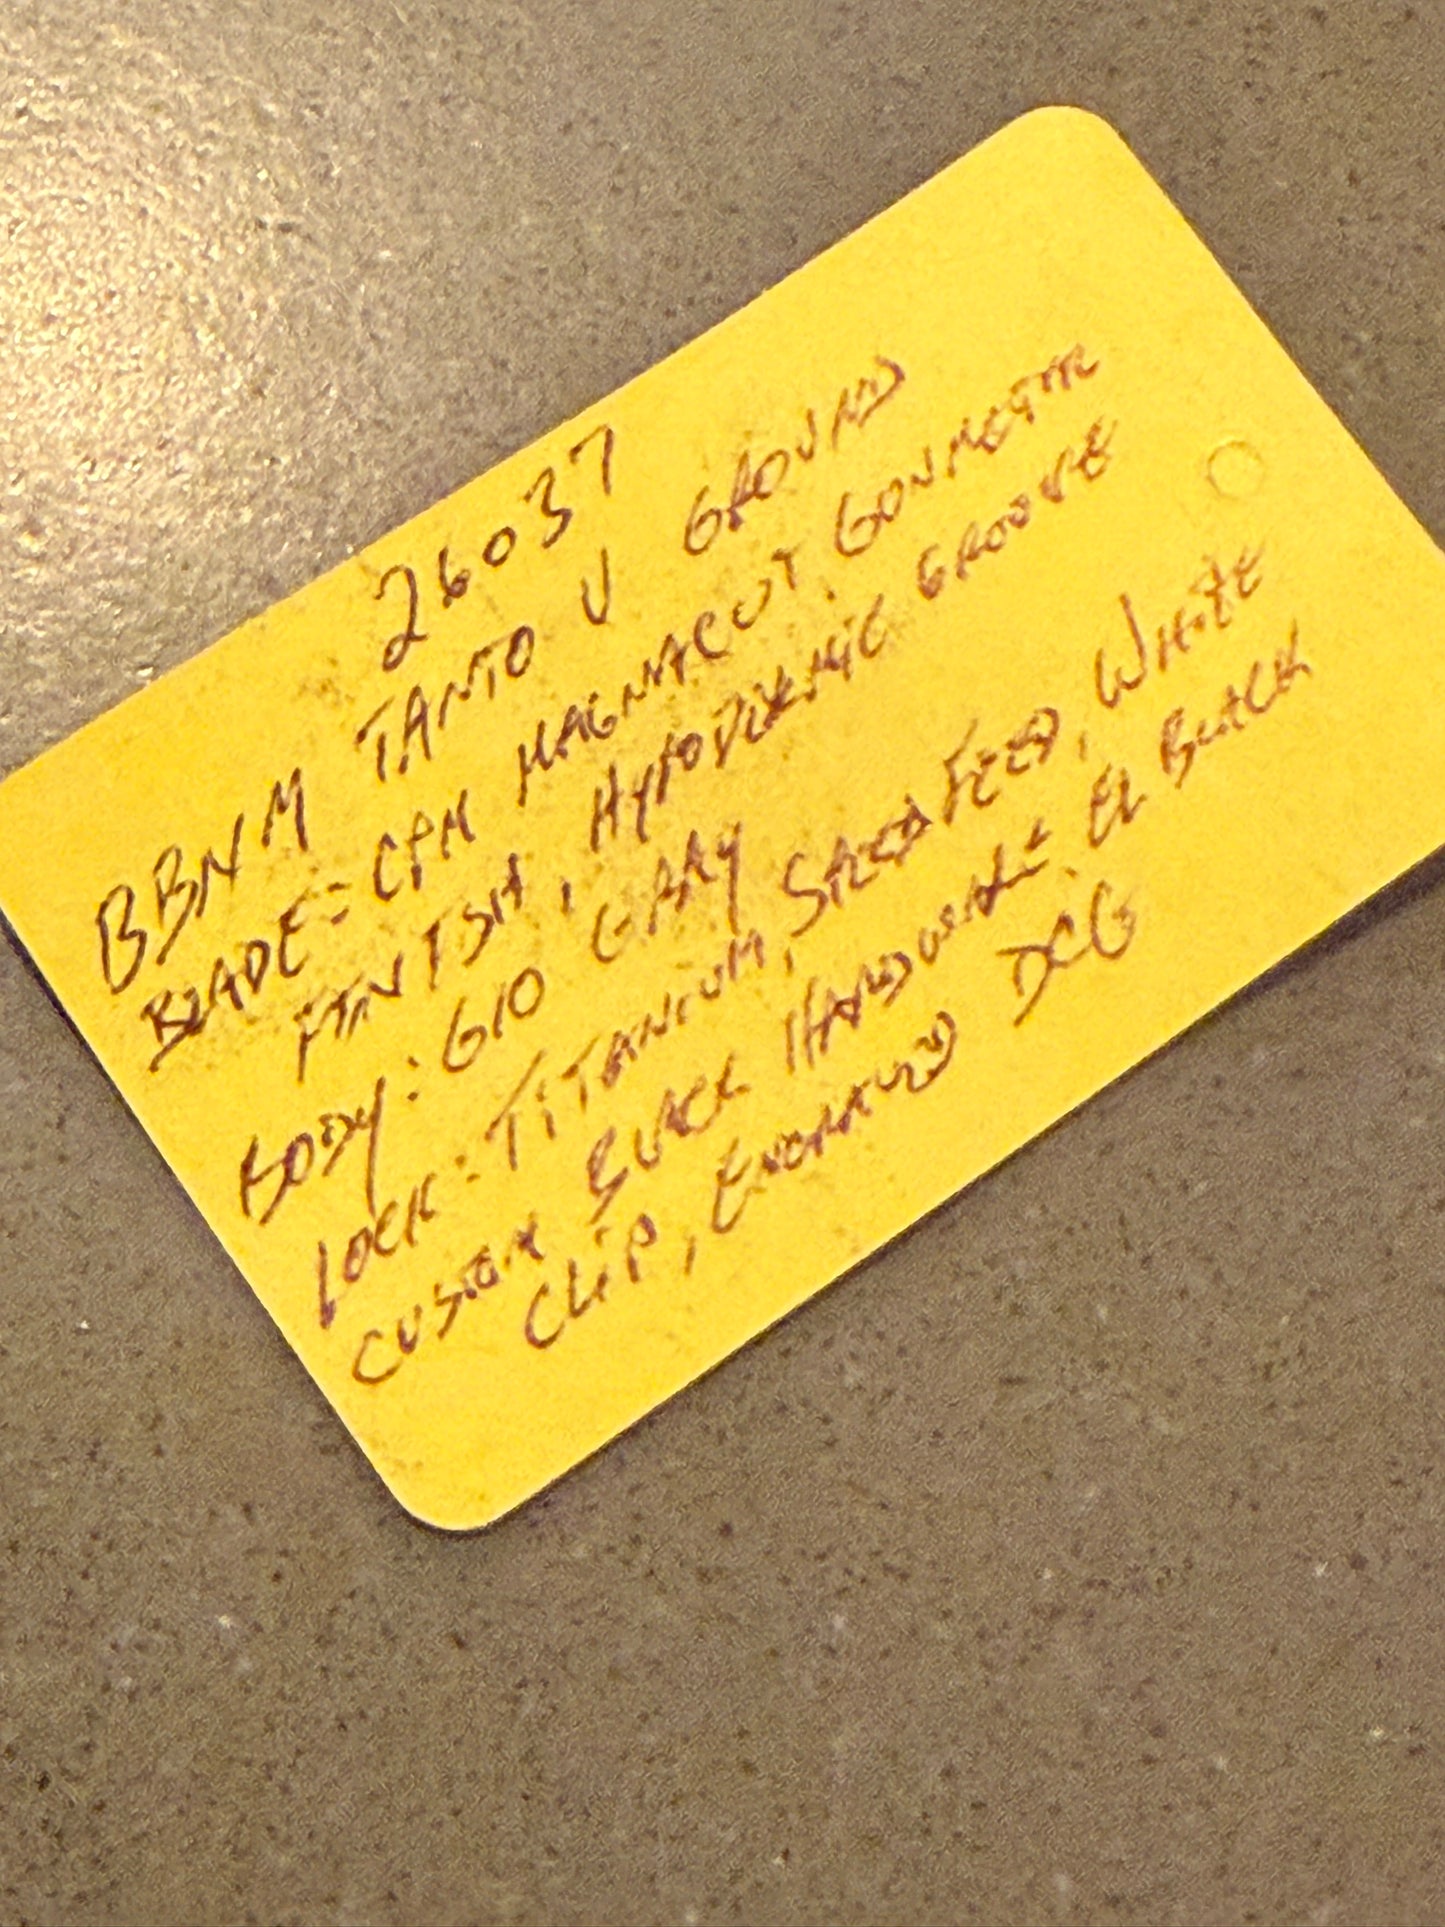 26037
BBNM TANTO U GROUND
BLADE: CPM MAGNACUT, GUNMETAL
FINISH, HYPODERMIC GROOVE
BODY: G10 GRAY
LOCK: TITANIUM, SPEED FEED, WHITE
CUSTOM BLACK HARDWARE: EL BLACK
CLIP, ENGRAVED DCG